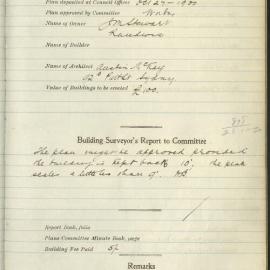 Plan deposited at Council Offices Oct 27 - 1900
Plan approved by Committee Works
Name of Owner J M Stewart
Randwick
Name of Builder
Name of Architect Austin McKay
92a Pitt St Sydney
Value of Buildings to be erected £100.
Building Surveyor's Report to Committee
The plan might be approved provided
the building is kept back 10'. the plan
scales a little less than 9'.
Report Book, folio
Plans Committee Minute Book, page
Building Fee Paid 5/-
Remarks